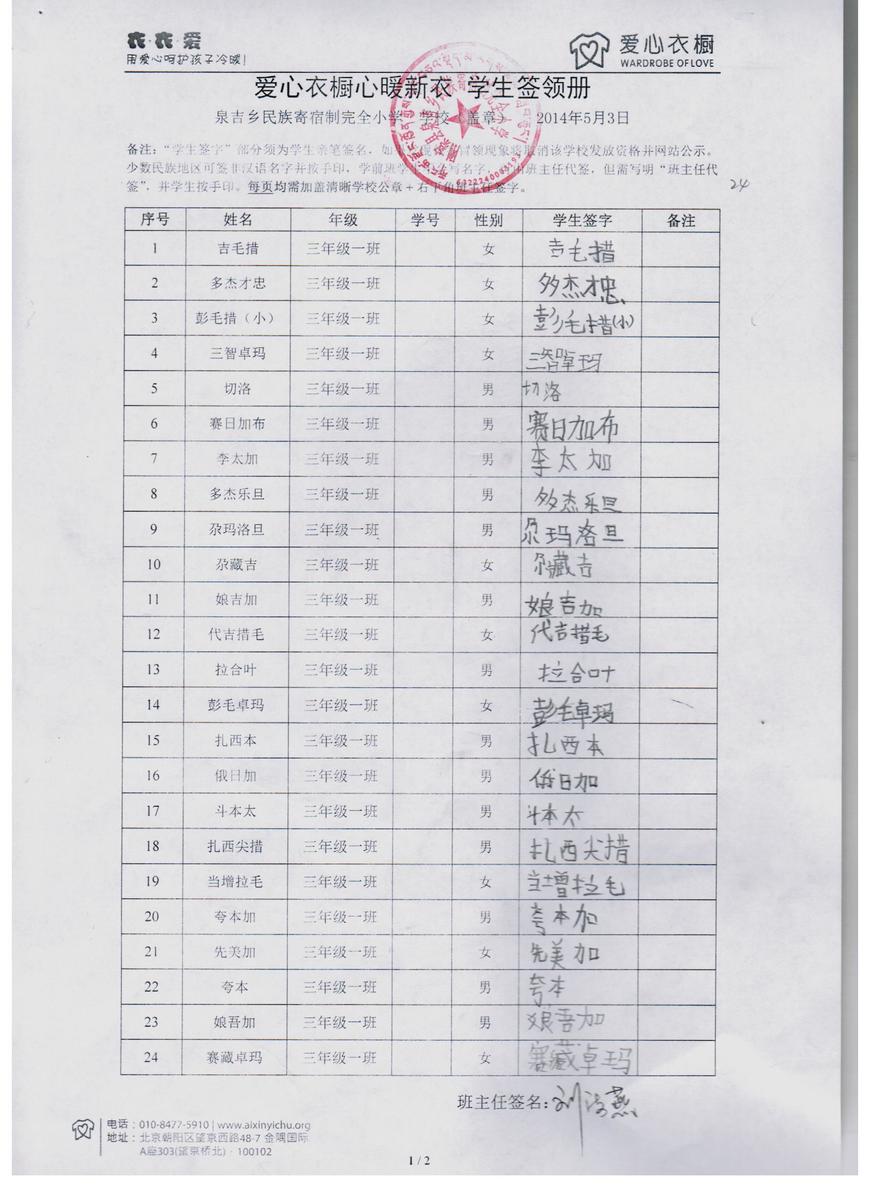 衣·衣·爱
用爱心呵护孩子冷暖!
爱心衣橱
WARDROBE OF LOVE
爱心衣橱心暖新衣 学生签领册
泉吉乡民族寄宿制完全小学 学校(盖章) 2014年5月3日
备注:“学生签字”部分须为学生亲笔签名,如 冒领现象将取消该学校发放资格并网站公示。
少数民族地区可签非汉语名字并按手印,学前班学生 写名字, 由班主任代签,但需写明“班主任代
签”,并学生按手印。每页均需加盖清晰学校公章+右下角班主任签字。
24
序号 姓名 年级 学号 性别 学生签字 备注
1 吉毛措 三年级一班 女 吉毛措
2 多杰才忠 三年级一班 女 多杰才忠
3 彭毛措(小) 三年级一班 女 彭毛措(小)
4 三智卓玛 三年级一班 女 三智卓玛
5 切洛 三年级一班 男 切洛
6 赛日加布 三年级一班 男 赛日加布
7 李太加 三年级一班 男 李太加
8 多杰乐旦 三年级一班 男 多杰乐旦
9 尕玛洛旦 三年级一班 男 尕玛洛旦
10 尕藏吉 三年级一班 女 尕藏吉
11 娘吉加 三年级一班 男 娘吉加
12 代吉措毛 三年级一班 女 代吉措毛
13 拉合叶 三年级一班 男 拉合叶
14 彭毛卓玛 三年级一班 女 彭毛卓玛
15 扎西本 三年级一班 男 扎西本
16 俄日加 三年级一班 男 俄日加
17 斗本太 三年级一班 男 斗本太
18 扎西尖措 三年级一班 男 扎西尖措
19 当增拉毛 三年级一班 女 当增拉毛
20 夸本加 三年级一班 男 夸本加
21 先美加 三年级一班 女 先美加
22 夸本 三年级一班 男 夸本
23 娘吾加 三年级一班 男 娘吾加
24 赛藏卓玛 三年级一班 女 赛藏卓玛
班主任签名:
电话:010-8477-5910 | www.aixinyichu.org
地址:北京朝阳区望京西路48-7 金隅国际
A座303(望京桥北)· 100102
1 / 2